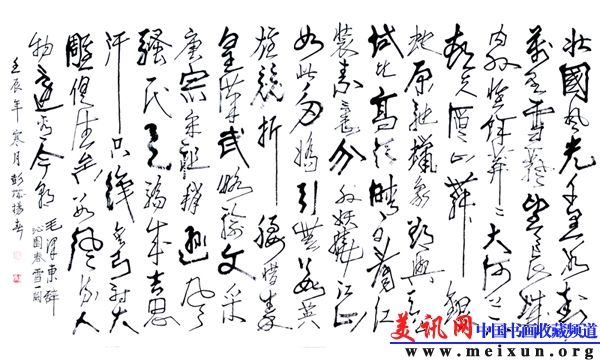 北國風光千里冰封
萬里雪飄望長城
內外惟餘莽莽大河上下
頓失滔滔山舞銀
蛇原馳蠟象欲與天公
試比高須晴日看紅
裝素裹分外妖嬈江山
如此多嬌引無數英
雄競折腰惜秦
皇漢武略輸文采
唐宗宋祖稍遜風
騷一代天驕成吉思
汗只識彎弓射大
雕俱往矣數風流人
物還看今朝
毛澤東辭
沁園春雪一闋
壬辰年寒月彭
美讯网
中国书画收藏频道
www.meixun.org